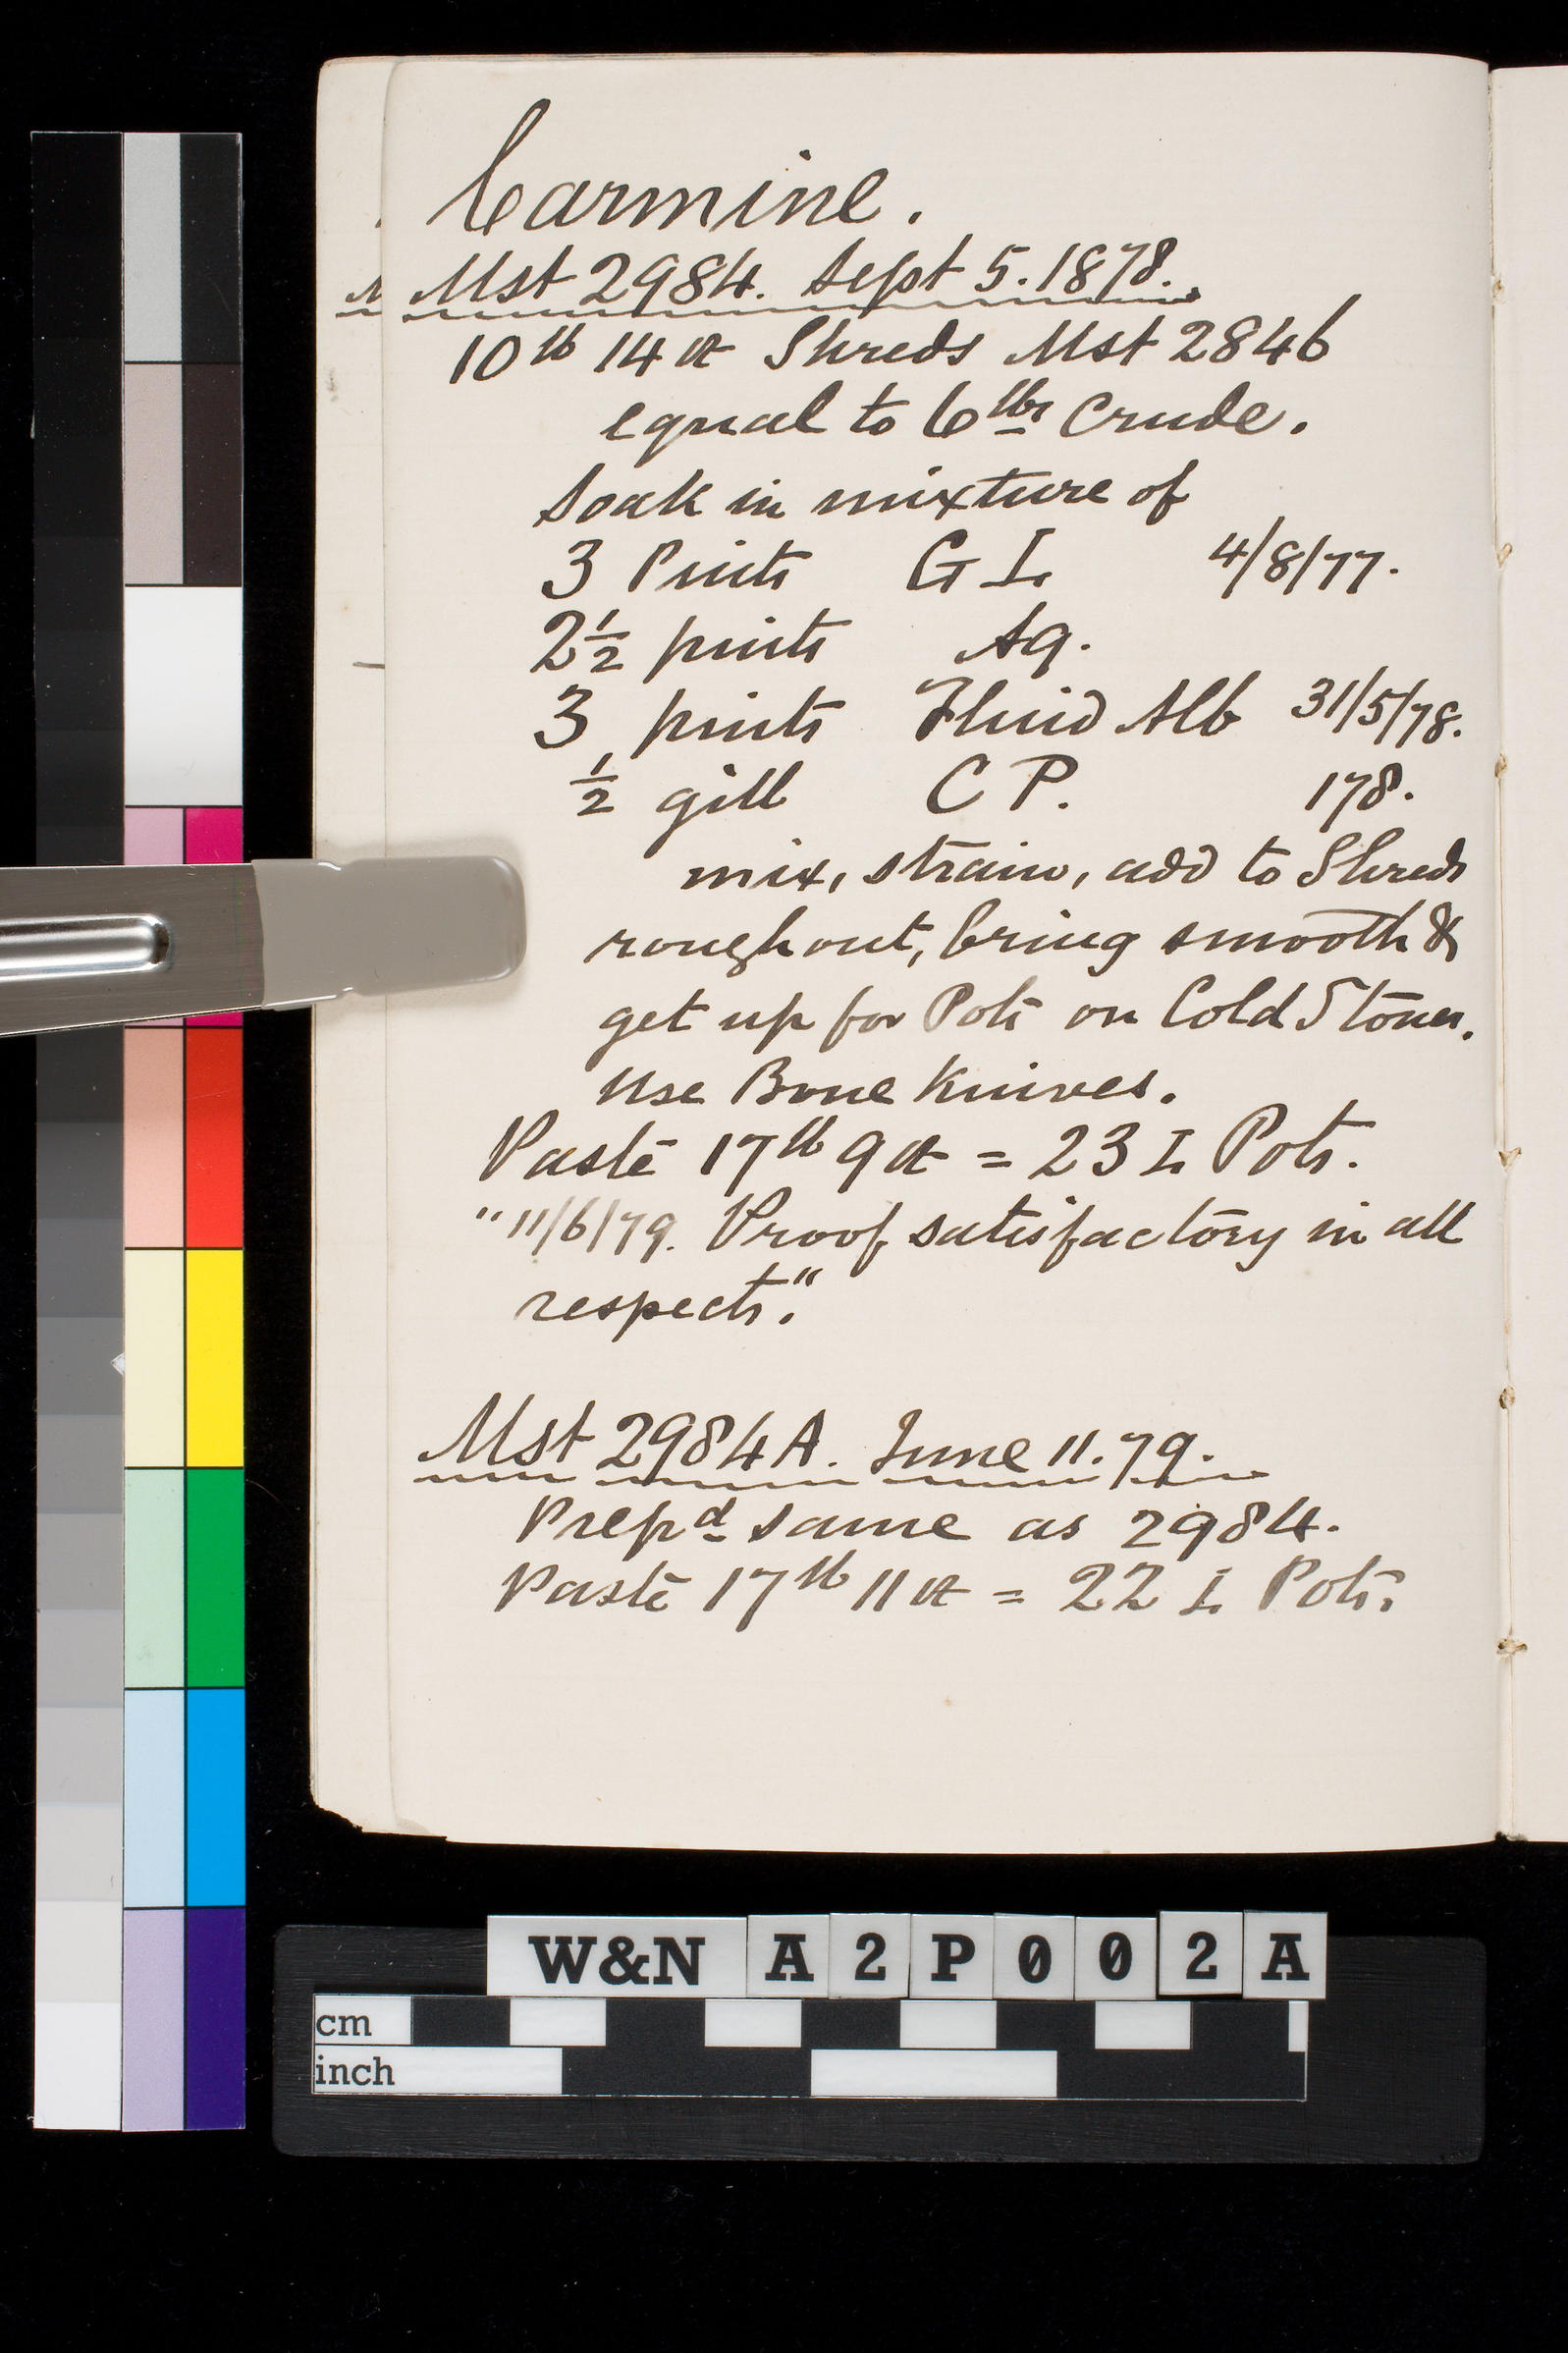 Carmine.
Mst 2984. Sept 5. 1878.
10 lb 14 ct Shreds Mst 2846
equal to 6 lbs Crude.
Soak in mixture of
3 Pints G L 4/8/77.
2½ pints Aq.
3 pints Fluid Alb 31/5/78.
½ gill C P. 178.
mix, strain, add to Shreds
rough out, bring smooth &
get up for Pots on Cold Stones.
Use Bone Knives.
Paste 17 lb 9 ct = 23 L Pots.
"11/6/79. Proof satisfactory in all
respects."
Mst 2984A. June 11. 79.
Prepd same as 2984.
Paste 17 lb 11 ct = 22 L Pots.
W&N A2P002A
cm
inch